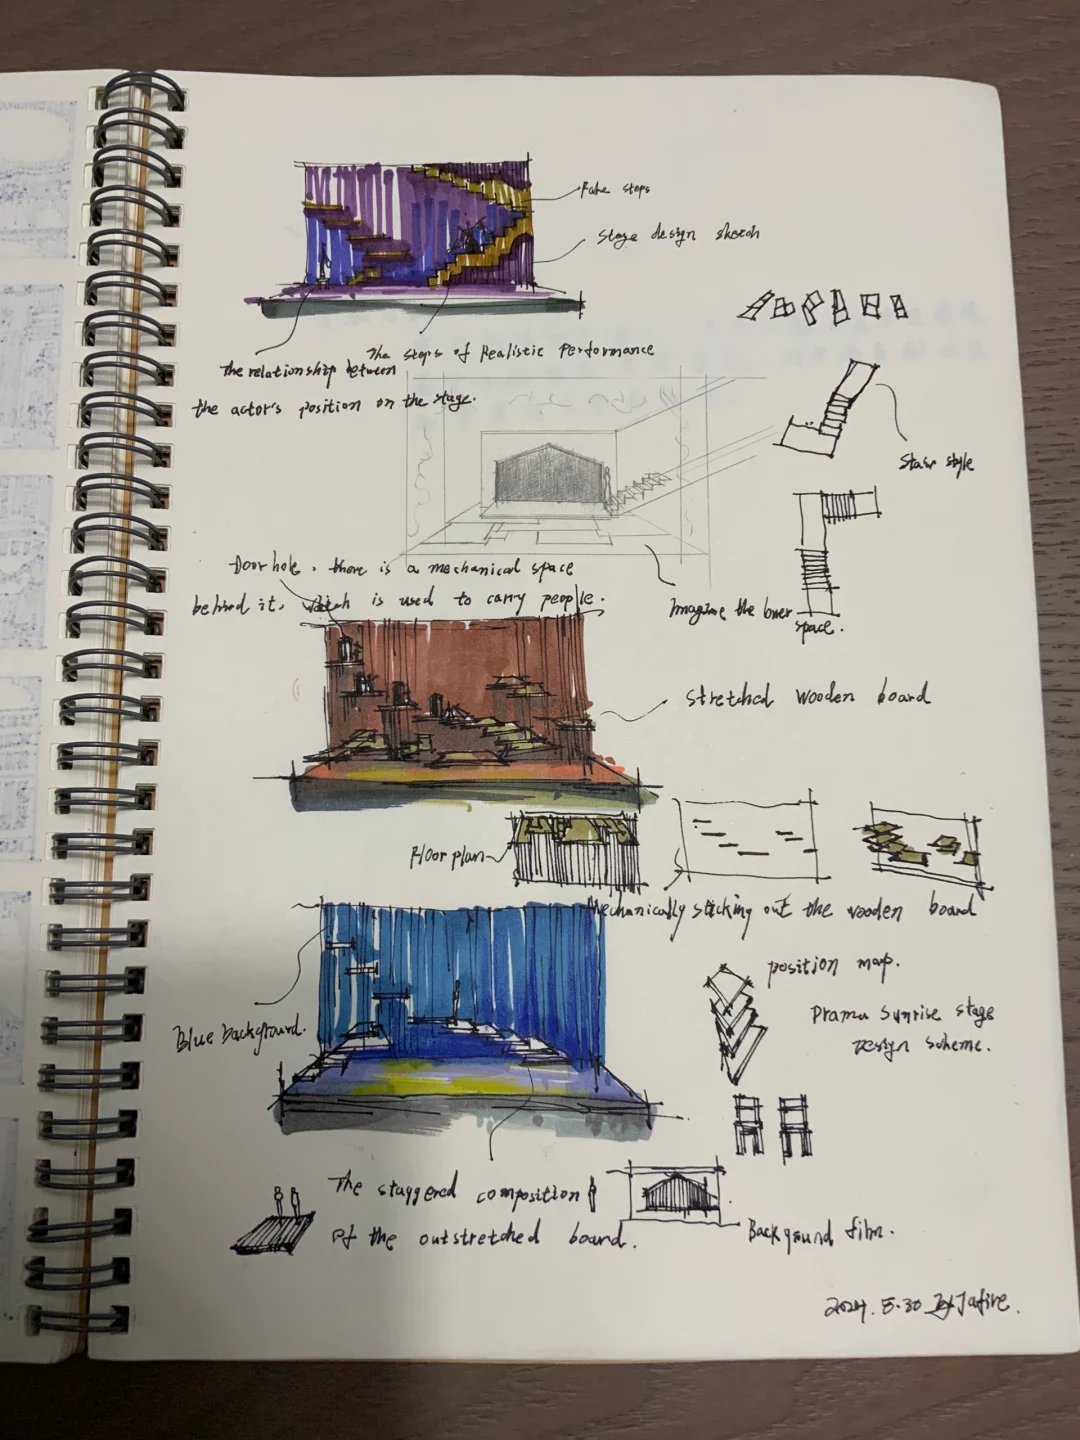 Fake steps
Stage design sketch
The steps of Realistic Performance
The relationship between
the actor's position on the stage.
Stair style
Door hole, there is a mechanical space
behind it, which is used to carry people.
Imagine the inner
space.
Stretched wooden board
Floor plan
Mechanically sticking out the wooden board
position map.
Drama Sunrise stage
Design scheme.
Blue background.
The staggered composition
of the outstretched board.
Background film.
2024.5.30 By Jafire.